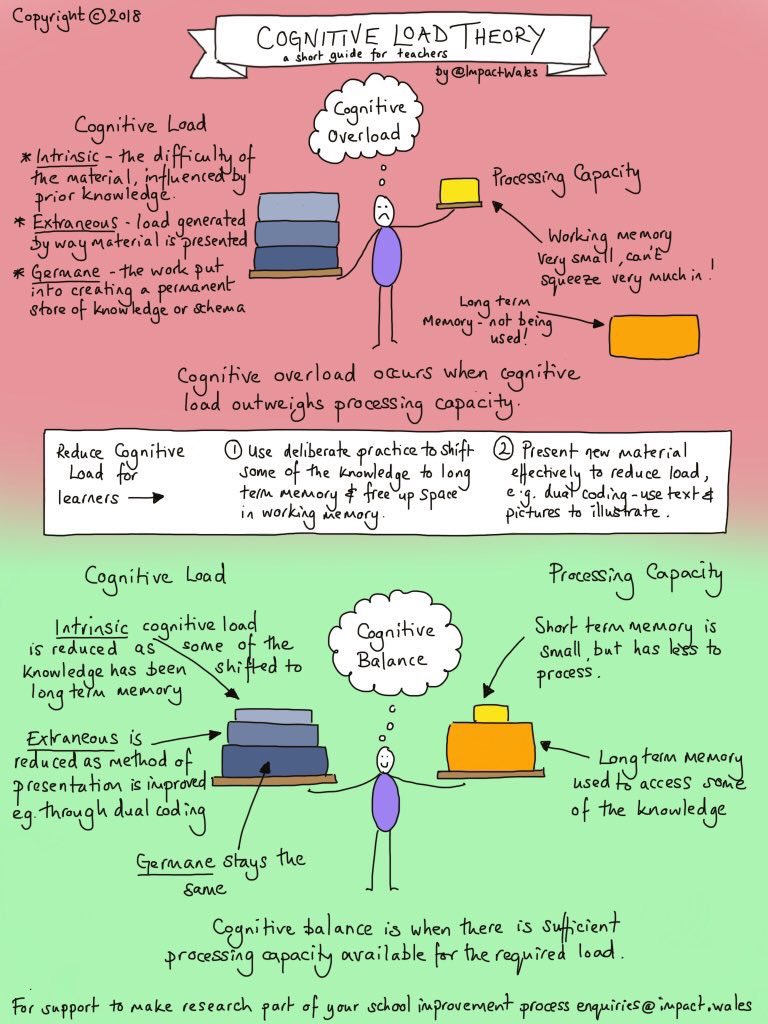 Copyright ©2018
COGNITIVE LOAD THEORY
a short guide for teachers
by @ImpactWales
Cognitive Load
* Intrinsic - the difficulty of
the material, influenced by
prior knowledge.
* Extraneous - load generated
by way material is presented
* Germane - the work put
into creating a permanent
store of knowledge or schema
Cognitive
Overload
Processing Capacity
Working memory
very small, can't
squeeze very much in!
Long term
Memory - not being
used!
Cognitive overload occurs when cognitive
load outweighs processing capacity.
Reduce Cognitive
Load for
learners →
① Use deliberate practice to shift
some of the knowledge to long
term memory & free up space
in working memory.
② Present new material
effectively to reduce load,
e.g. dual coding - use text &
pictures to illustrate.
Cognitive Load
Intrinsic cognitive load
is reduced as some of the
knowledge has been shifted to
long term memory
Extraneous is
reduced as method of
presentation is improved
eg. through dual coding
Germane stays the
same
Cognitive
Balance
Processing Capacity
Short term memory is
small, but has less to
process.
Long term memory
used to access some
of the knowledge
Cognitive balance is when there is sufficient
processing capacity available for the required load.
For support to make research part of your school improvement process enquiries@impact.wales